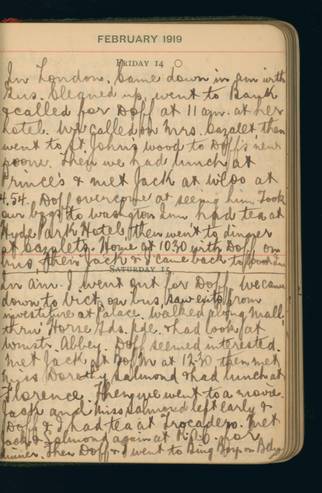 FEBRUARY 1919
FRIDAY 14
In London. Came down in am with
Gus. Cleaned up, went to Bank
& called for Doff at 11 am. at her
hotel. We called on Mrs. Cazalet then
went to St. John's wood to Doff's
Then we had lunch at
Prince's & met Jack at W'loo at
4.54. Doff overcome at seeing him. Took
our bags to Washington Inn had tea at
Hyde Park Hotel, then went to dinner
at Cazalets. Home at 10.30 with Doff on
bus, then Jack & I came back to
SATURDAY 15
In am. I went out for Doff, we came
down to Vict. on bus, saw exits from
investiture at Palace, walked along Mall,
thru' Horse Gds. pde. & had look at
Wmstr. Abbey. Doff seemed interested.
Met Jack at at 12.30 then met
Miss Dorothy Salmond & had lunch at
Florence. Then we went to a movie.
Jack and Miss Salmond left early &
Doff & I had tea at Trocadero. Met
Jack & Salmond again at for
dinner. Then Doff & I went to Bing Boys on Bdwy